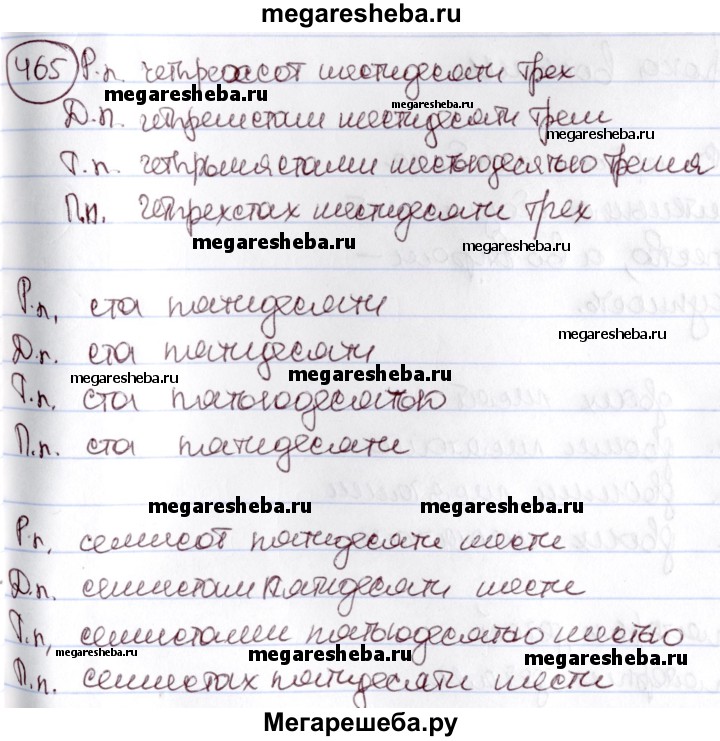 megaresheba.ru
465 Р.п. четырехсот шестидесяти трех
megaresheba.ru megaresheba.ru
Д.п. четыремстам шестидесяти трем
megaresheba.ru
Т.п. четырьмястами шестьюдесятью тремя
П.п. четырехстах шестидесяти трех
megaresheba.ru megaresheba.ru
Р.п. ста пятидесяти
megaresheba.ru
Д.п. ста пятидесяти
megaresheba.ru megaresheba.ru
Т.п. ста пятьюдесятью
П.п. ста пятидесяти
megaresheba.ru megaresheba.ru
Р.п. семисот пятидесяти шести
Д.п. семистам пятидесяти шести
Т.п. семистами пятьюдесятью шестью
megaresheba.ru megaresheba.ru megaresheba.ru
П.п. семистах пятидесяти шести
Мегарешеба.ру